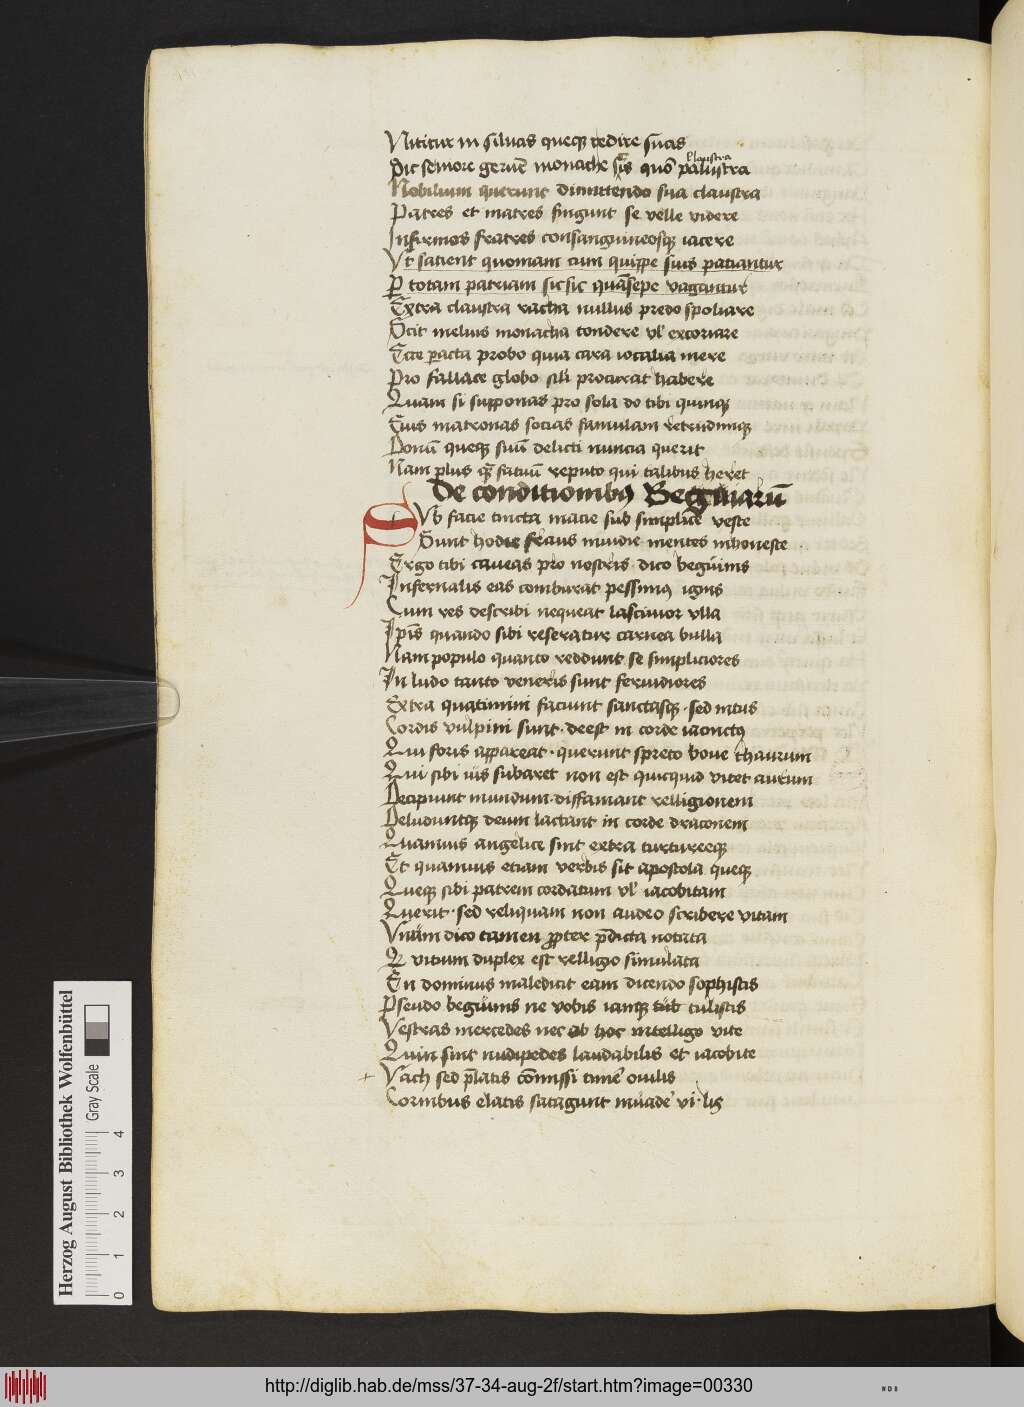 Nititur in siluas queq; redire suas
Sic semore geruē monache sis quō palustra
claustra
Nobilium querunt dimittendo sua claustra
Patres et matres fingunt se velle videre
Infirmos fratres consanguineosq; iacere
Vt satient quoniam cum quippe suis patiantur
P totam patriam sic sic quāsepe vagantur
Extra claustra vacha nullus predo spoliare
Scit melius monacha tondere vl' excoriare
Ecce pacta probo quia cara iocalia mere
Pro fallace globo sili procurat habere
Quam si supponas pro sola do tibi quinq;
Eius matronas socias famulam retrudimq;
Donū queq; suū delicti nuncia querit
Nam plus q̄ fatuū reputo qui talibus heret
De conditionibus Begginarū
SVb facie tincta macie sub simplice veste
Sunt hodie mundie mentes inhoneste
Ergo tibi caueas pro nostris dico begūinis
Infernalis eas comburat pessimus ignis
Cum res describi nequeat lasciuior vlla
Ipīs quando sibi reseratur carnea bulla
Nam populo quanto reddunt se simpliciores
In ludo tanto veneris sunt feruidiores
Extra quatinini faciunt sanctasq; sed intus
Cordis vulpini sunt deest in corde iacinctus
Qui foris appareat querunt spreto boue thaurum
Qui sibi iūs subaret non est quicquid vitet aurum
Decipiunt mundum diffamant relligionem
Deluduntq; deum lactant in corde draconem
Quamuis angelice sint extra turtureeq;
Et quamuis etiam verbis sit apostola queq;
Queq; sibi patrem cordatum vl' iacobitam
Querit sed reliquam non audeo scribere vitam
Vnam dico tamen ꝓpter p̄dicta notata
Qr vitium duplex est relligio simulata
En dominus maledicit eam dicendo sophistis
Pseudo begūinis ne vobis iamq; tulistis
Vestras mercedes nec ob hoc intelligo vite
Quin sint nudipedes laudabilis et iacobite
+ Vach sed p̄latis cōmissi ouilis
Cornibus elatis satagunt
Herzog August Bibliothek Wolfenbüttel
Gray Scale
0 1 2 3 4
http://diglib.hab.de/mss/37-34-aug-2f/start.htm?image=00330